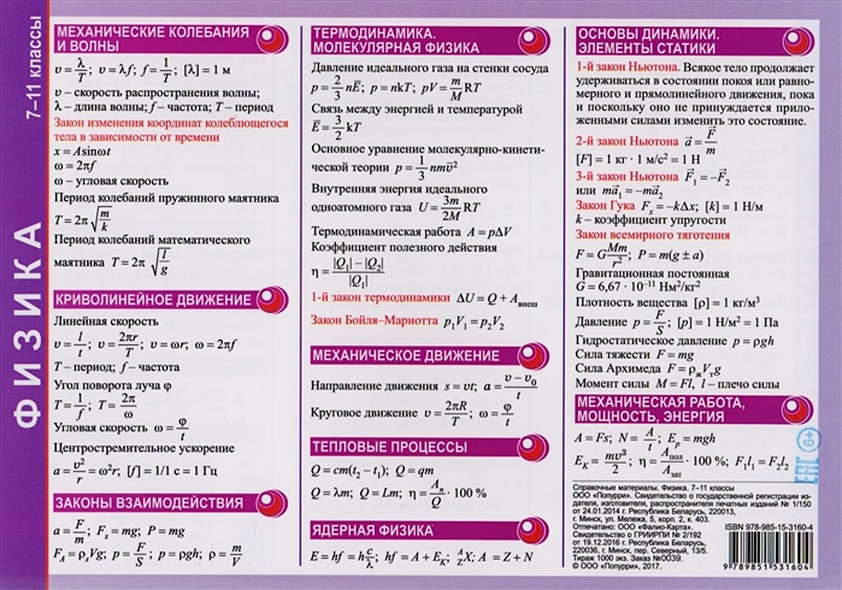 ФИЗИКА
7–11 классы
МЕХАНИЧЕСКИЕ КОЛЕБАНИЯ
И ВОЛНЫ
υ = λ/T; υ = λf; f = 1/T; [λ] = 1 м
υ – скорость распространения волны;
λ – длина волны; f – частота; T – период
Закон изменения координат колеблющегося
тела в зависимости от времени
x = Asinωt
ω = 2πf
ω – угловая скорость
Период колебаний пружинного маятника
T = 2π √(m/k)
Период колебаний математического
маятника T = 2π √(l/g)
КРИВОЛИНЕЙНОЕ ДВИЖЕНИЕ
Линейная скорость
υ = l/t; υ = 2πr/T; υ = ωr; ω = 2πf
T – период; f – частота
Угол поворота луча φ
T = 1/f; T = 2π/ω
Угловая скорость ω = φ/t
Центростремительное ускорение
a = υ²/r = ω²r; [f] = 1/1 с = 1 Гц
ЗАКОНЫ ВЗАИМОДЕЙСТВИЯ
a = F/m; Fₛ = mg; P = mg
F_A = ρₛVg; p = F/S; p = ρgh; ρ = m/V
ТЕРМОДИНАМИКА.
МОЛЕКУЛЯРНАЯ ФИЗИКА
Давление идеального газа на стенки сосуда
p = 2/3 nE̅; p = nkT; pV = m/M RT
Связь между энергией и температурой
E̅ = 3/2 kT
Основное уравнение молекулярно-кинети-
ческой теории p = 1/3 nmυ̅²
Внутренняя энергия идеального
одноатомного газа U = 3m/2M RT
Термодинамическая работа A = pΔV
Коэффициент полезного действия
η = (|Q₁| – |Q₂|)/|Q₁|
1-й закон термодинамики ΔU = Q + Aвнеш
Закон Бойля–Мариотта p₁V₁ = p₂V₂
МЕХАНИЧЕСКОЕ ДВИЖЕНИЕ
Направление движения s = υt; a = (υ – υ₀)/t
Круговое движение υ = 2πR/T; ω = φ/t
ТЕПЛОВЫЕ ПРОЦЕССЫ
Q = cm(t₂ – t₁); Q = qm
Q = λm; Q = Lm; η = Aп/Q · 100 %
ЯДЕРНАЯ ФИЗИКА
E = hf = h c/λ; hf = A + E_K; ᴬ_Z X; A = Z + N
ОСНОВЫ ДИНАМИКИ.
ЭЛЕМЕНТЫ СТАТИКИ
1-й закон Ньютона. Всякое тело продолжает
удерживаться в состоянии покоя или равно-
мерного и прямолинейного движения, пока
и поскольку оно не принуждается прило-
женными силами изменить это состояние.
2-й закон Ньютона a⃗ = F⃗/m
[F] = 1 кг · 1 м/с² = 1 Н
3-й закон Ньютона F⃗₁ = –F⃗₂
или ma⃗₁ = –ma⃗₂
Закон Гука Fₓ = –kΔx; [k] = 1 Н/м
k – коэффициент упругости
Закон всемирного тяготения
F = G Mm/r²; P = m(g ± a)
Гравитационная постоянная
G = 6,67 · 10⁻¹¹ Нм²/кг²
Плотность вещества [ρ] = 1 кг/м³
Давление p = F/S; [p] = 1 Н/м² = 1 Па
Гидростатическое давление p = ρgh
Сила тяжести F = mg
Сила Архимеда F = ρжVтg
Момент силы M = Fl, l – плечо силы
МЕХАНИЧЕСКАЯ РАБОТА,
МОЩНОСТЬ, ЭНЕРГИЯ
A = Fs; N = A/t; Eₚ = mgh
E_K = mυ²/2; η = Aпол/Aзат · 100 %; F₁l₁ = F₂l₂
6+
ЕАС
Справочные материалы. Физика. 7–11 классы
ООО «Попурри». Свидетельство о государственной регистрации из-
дателя, изготовителя, распространителя печатных изданий № 1/150
от 24.01.2014 г. Республика Беларусь, 220013,
г. Минск, ул. Мележа, 5, корп. 2, к. 403.
Отпечатано: ООО «Фалио-Карта».
Свидетельство о ГРИИРПИ № 2/192
от 19.12.2016 г. Республика Беларусь,
220036, г. Минск, пер. Северный, 13/5.
Тираж 1000 экз. Заказ №0039.
© ООО «Попурри», 2017.
ISBN 978-985-15-3160-4
9 789851 531604